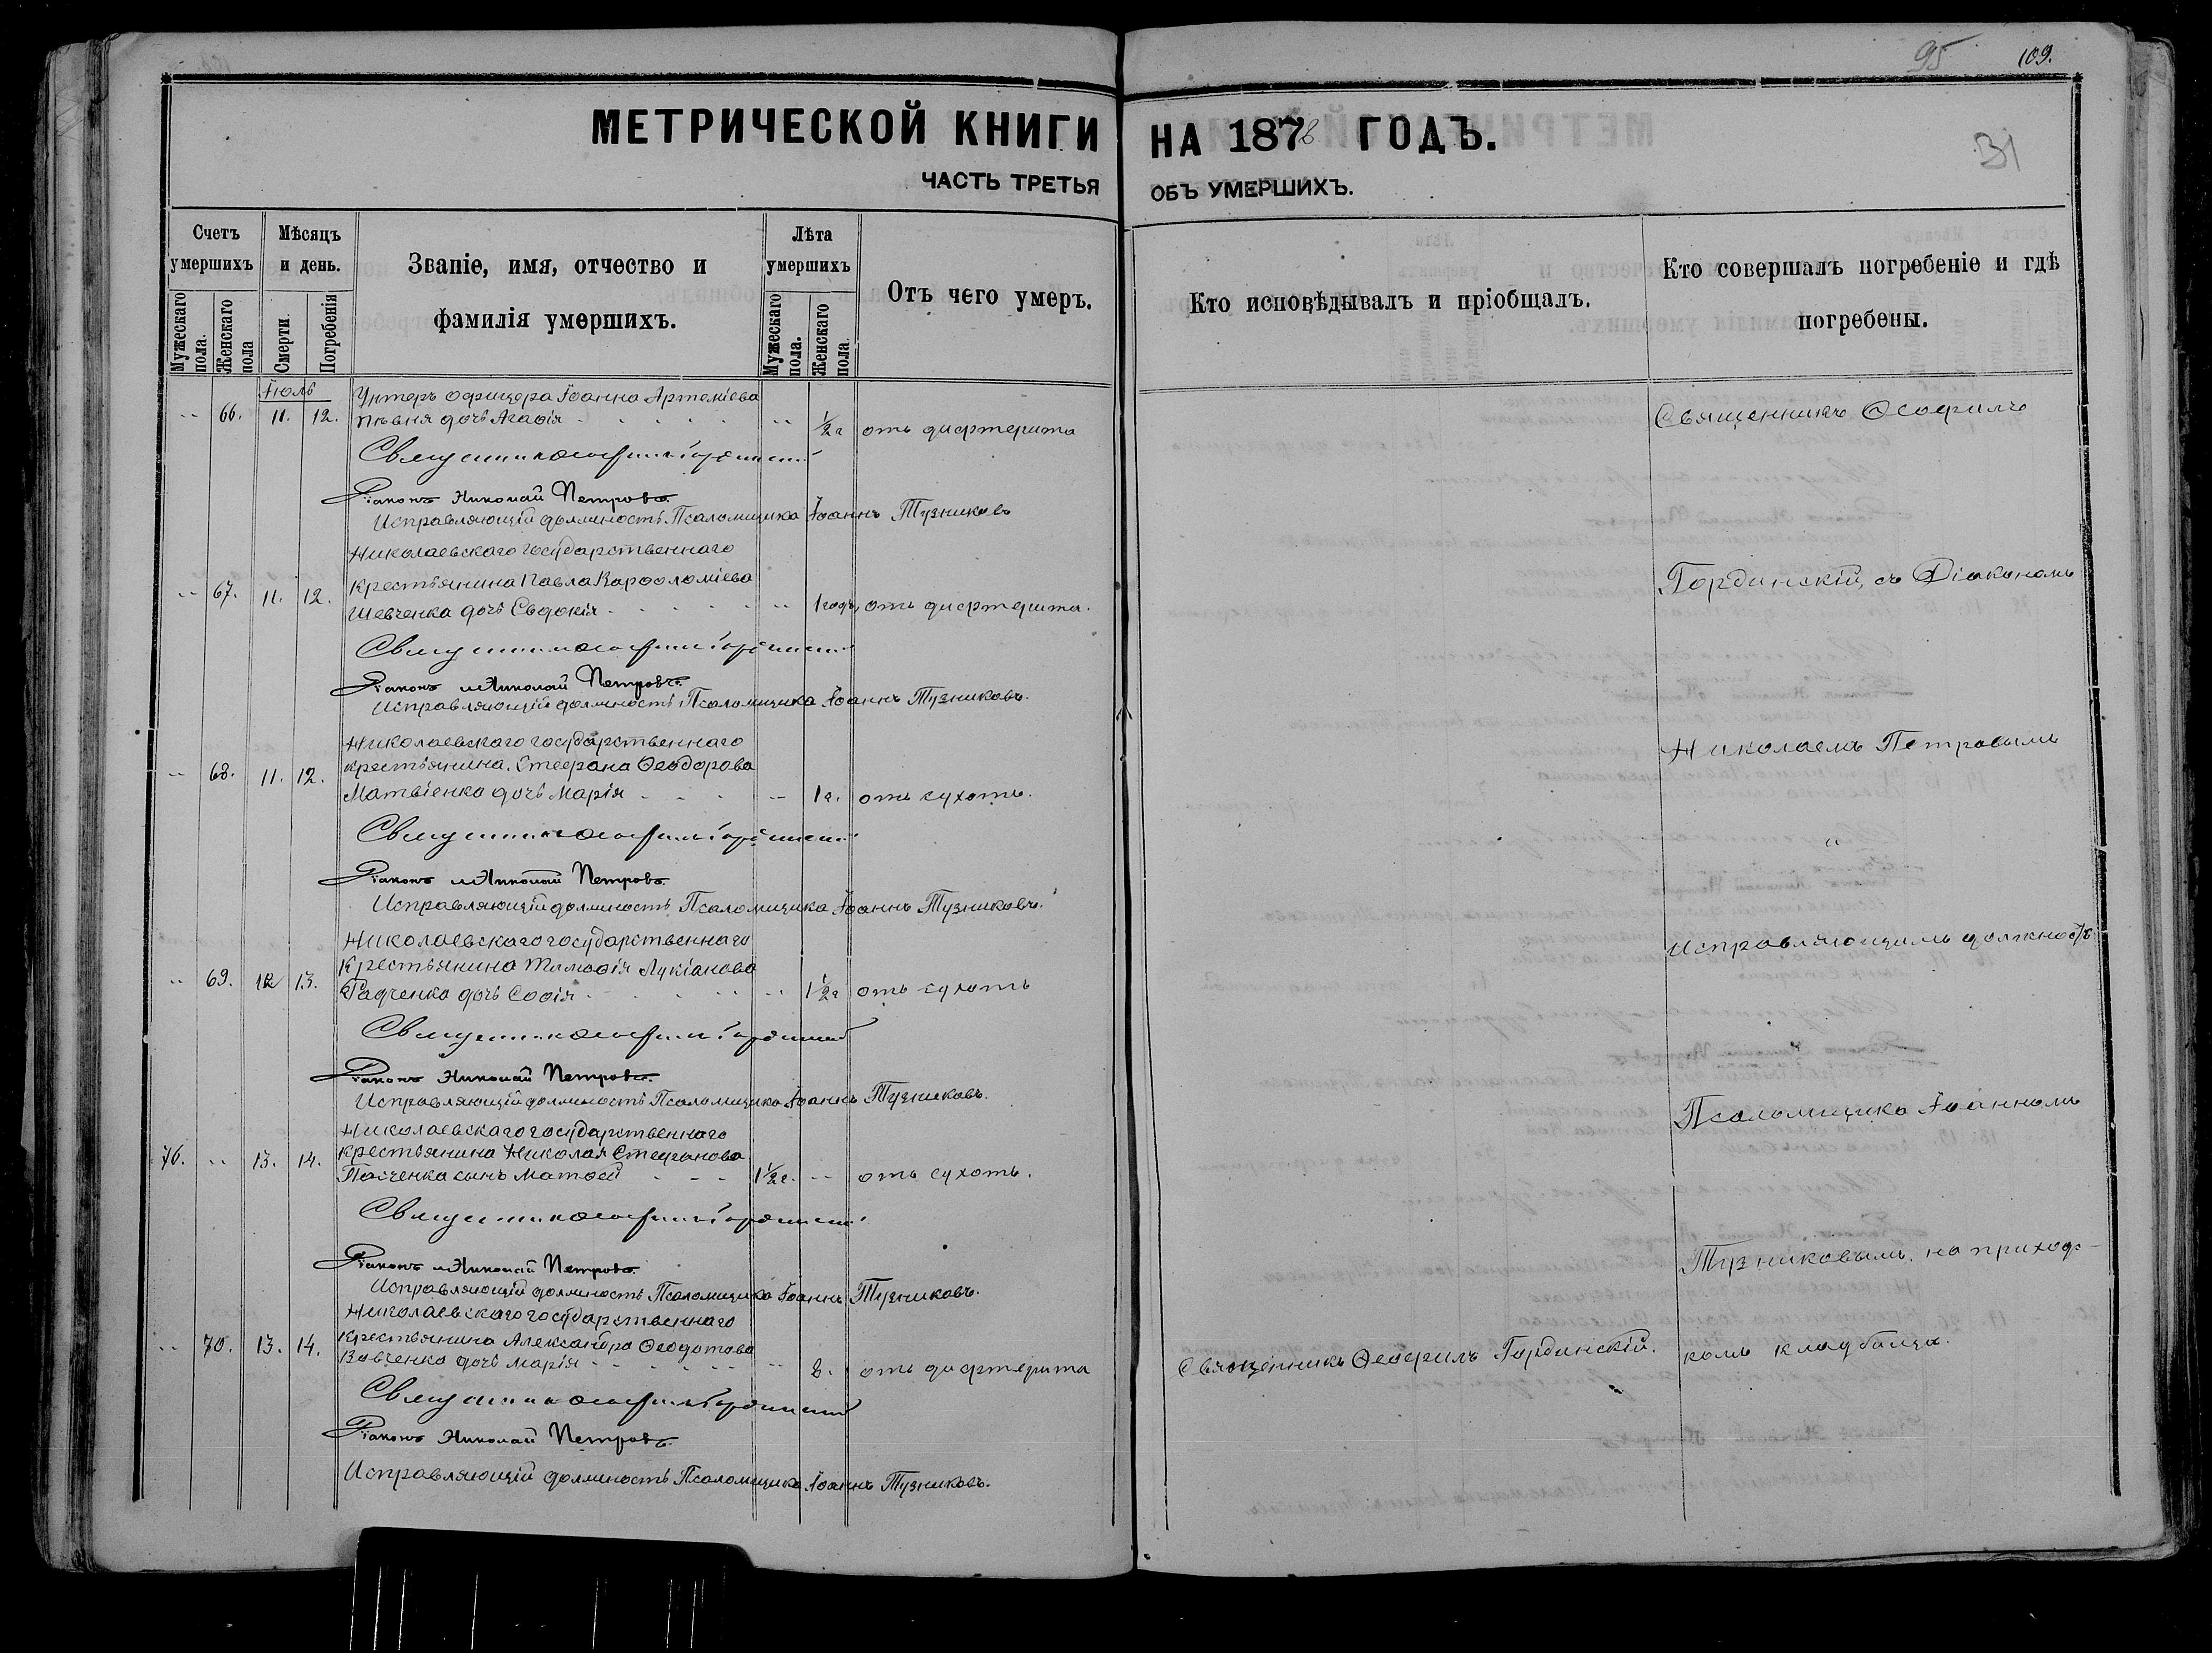 95 109.
31
МЕТРИЧЕСКОЙ КНИГИ НА 1878 ГОДЪ.
ЧАСТЬ ТРЕТЬЯ ОБЪ УМЕРШИХЪ.
Счетъ умершихъ
Мужескаго пола.
Женскаго пола
Мѣсяцъ и день.
Смерти.
Погребенія
Званіе, имя, отчество и фамилія умершихъ.
Лѣта умершихъ
Мужескаго пола.
Женскаго пола.
Отъ чего умеръ.
Кто исповѣдывалъ и пріобщалъ.
Кто совершалъ погребеніе и гдѣ погребены.
Іюль
Унтеръ офицера Іоанна Артеміева
-- 66. 11. 12. Пѣвня дочь Агафія -- ½ г отъ дифтерита
Священникъ Ѳеофилъ Гординскій
Діаконъ Николай Петровъ.
Исправляющій должность Псаломщика Іоаннъ Тузниковъ
Николаевскаго государственнаго
-- 67. 11. 12. Крестьянина Павла Варфоломіева
Шевченка дочь Евдокія -- 1 годъ, отъ дифтерита.
Священникъ Ѳеофилъ Гординскій
Діаконъ Николай Петровъ.
Исправляющій должность Псаломщика Іоаннъ Тузниковъ.
Николаевскаго государственнаго
-- 68. 11. 12. крестьянина Стефана Ѳеодорова
Матвіенко дочь Марія -- 1 г. отъ сухотъ.
Священникъ Ѳеофилъ Гординскій
Діаконъ Николай Петровъ.
Исправляющій должность Псаломщика Іоаннъ Тузниковъ.
Николаевскаго государственнаго
-- 69. 12 13. Крестьянина Тимофія Лукіанова
Радченка дочь Софія -- 1½ г отъ сухотъ
Священникъ Ѳеофилъ Гординскій
Діаконъ Николай Петровъ.
Исправляющій должность Псаломщика Іоаннъ Тузниковъ.
Николаевскаго государственнаго
76. -- 13. 14. крестьянина Николая Стефанова
сынъ Матѳей 1½ г. -- отъ сухотъ.
Священникъ Ѳеофилъ Гординскій
Діаконъ Николай Петровъ.
Исправляющій должность Псаломщика Іоаннъ Тузниковъ.
Николаевскаго государственнаго
-- 70. 13. 14. Крестьянина Александра Ѳеодотова
Вовченко дочь Марія -- 8. отъ дифтерита
Священникъ Ѳеофилъ Гординскій
Діаконъ Николай Петровъ.
Исправляющій должность Псаломщика Іоаннъ Тузниковъ.
Священникъ Ѳеофилъ Гординскій.
Священникъ Ѳеофилъ
Гординскій, съ Діакономъ
Николаемъ Петровымъ
и
Исправляющимъ должность
Псаломщика Іоанномъ
Тузниковымъ, на приход-
комъ кладбища.